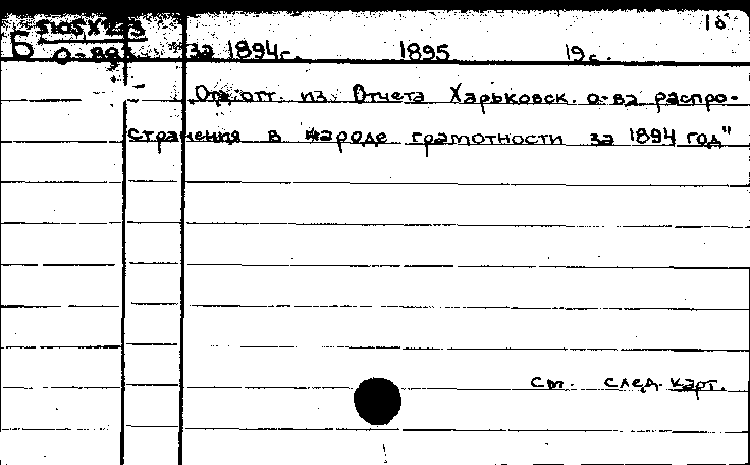 10
Б 5105X253
0-883 за 1894г. 1895 19с.
„Отд. отт. из Отчета Харьковск. о-ва распро-
странения в народе грамотности за 1894 год"
См. след. карт.